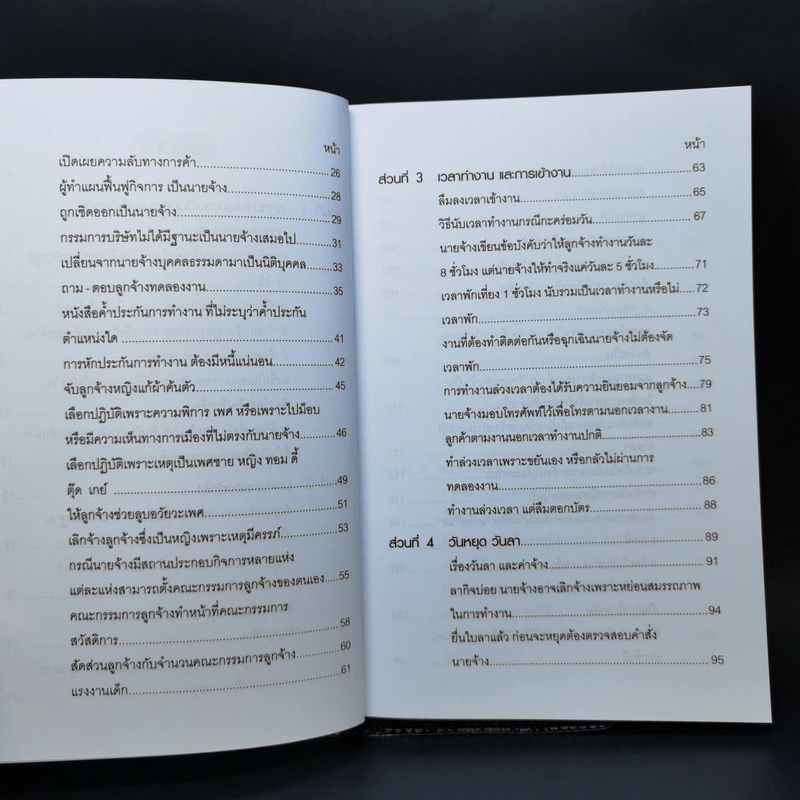 หน้า
เปิดเผยความลับทางการค้า 26
ผู้ทำแผนฟื้นฟูกิจการ เป็นนายจ้าง 28
ถูกเชิดออกเป็นนายจ้าง 29
กรรมการบริษัทไม่ได้มีฐานะเป็นนายจ้างเสมอไป 31
เปลี่ยนจากนายจ้างบุคคลธรรมดามาเป็นนิติบุคคล 33
ถาม - ตอบลูกจ้างทดลองงาน 35
หนังสือค้ำประกันการทำงาน ที่ไม่ระบุว่าค้ำประกัน
ตำแหน่งใด 41
การหักประกันการทำงาน ต้องมีหนี้แน่นอน 42
จับลูกจ้างหญิงแก้ผ้าค้นตัว 45
เลือกปฏิบัติเพราะความพิการ เพศ หรือเพราะไปม็อบ
หรือมีความเห็นทางการเมืองที่ไม่ตรงกับนายจ้าง 46
เลือกปฏิบัติเพราะเหตุเป็นเพศชาย หญิง ทอม ดี้
ตุ๊ด เกย์ 49
ให้ลูกจ้างช่วยลูบอวัยวะเพศ 51
เลิกจ้างลูกจ้างซึ่งเป็นหญิงเพราะเหตุมีครรภ์ 53
กรณีนายจ้างมีสถานประกอบกิจการหลายแห่ง
แต่ละแห่งสามารถตั้งคณะกรรมการลูกจ้างของตนเอง 55
คณะกรรมการลูกจ้างทำหน้าที่คณะกรรมการ
สวัสดิการ 58
สัดส่วนลูกจ้างกับจำนวนคณะกรรมการลูกจ้าง 60
แรงงานเด็ก 61
หน้า
ส่วนที่ 3 เวลาทำงาน และการเข้างาน 63
ลืมลงเวลาเข้างาน 65
วิธีนับเวลาทำงานกรณีกะคร่อมวัน 67
นายจ้างเขียนข้อบังคับว่าให้ลูกจ้างทำงานวันละ
8 ชั่วโมง แต่นายจ้างให้ทำจริงแค่วันละ 5 ชั่วโมง 71
เวลาพักเที่ยง 1 ชั่วโมง นับรวมเป็นเวลาทำงานหรือไม่ 72
เวลาพัก 73
งานที่ต้องทำติดต่อกันหรือฉุกเฉินนายจ้างไม่ต้องจัด
เวลาพัก 75
การทำงานล่วงเวลาต้องได้รับความยินยอมจากลูกจ้าง 79
นายจ้างมอบโทรศัพท์ไว้เพื่อโทรตามนอกเวลางาน 81
ลูกค้าตามงานนอกเวลาทำงานปกติ 83
ทำล่วงเวลาเพราะขยันเอง หรือกลัวไม่ผ่านการ
ทดลองงาน 86
ทำงานล่วงเวลา แต่ลืมตอกบัตร 88
ส่วนที่ 4 วันหยุด วันลา 89
เรื่องวันลา และค่าจ้าง 91
ลากิจบ่อย นายจ้างอาจเลิกจ้างเพราะหย่อนสมรรถภาพ
ในการทำงาน 94
ยื่นใบลาแล้ว ก่อนจะหยุดต้องตรวจสอบคำสั่ง
นายจ้าง 95